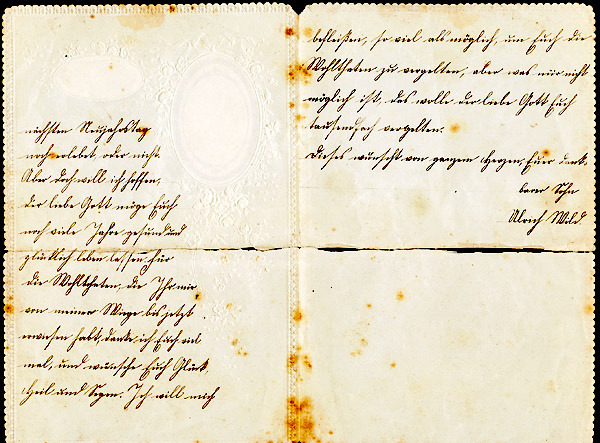 nächsten Neujahrstag
noch erlebet, oder nicht.
Aber doch will ich hoffen,
der liebe Gott möge Euch
noch viele Jahre gesund und
glücklich leben lassen. Für
die Wohlthaten, die Ihr mir,
von meiner Wiege bis jetzt
erwiesen habt, danke ich Euch viel
mal, und wünsche Euch Glück,
Heil und Segen. Ich will mich
befleißen, so viel als möglich, um Euch die
Wohlthaten zu vergelten, aber was mir nicht
möglich ist, das wolle der liebe Gott Euch
tausendfach vergelten.
Dieses wünscht von ganzem Herzen, Euer dank
barer Sohn
Ulrich Wild.